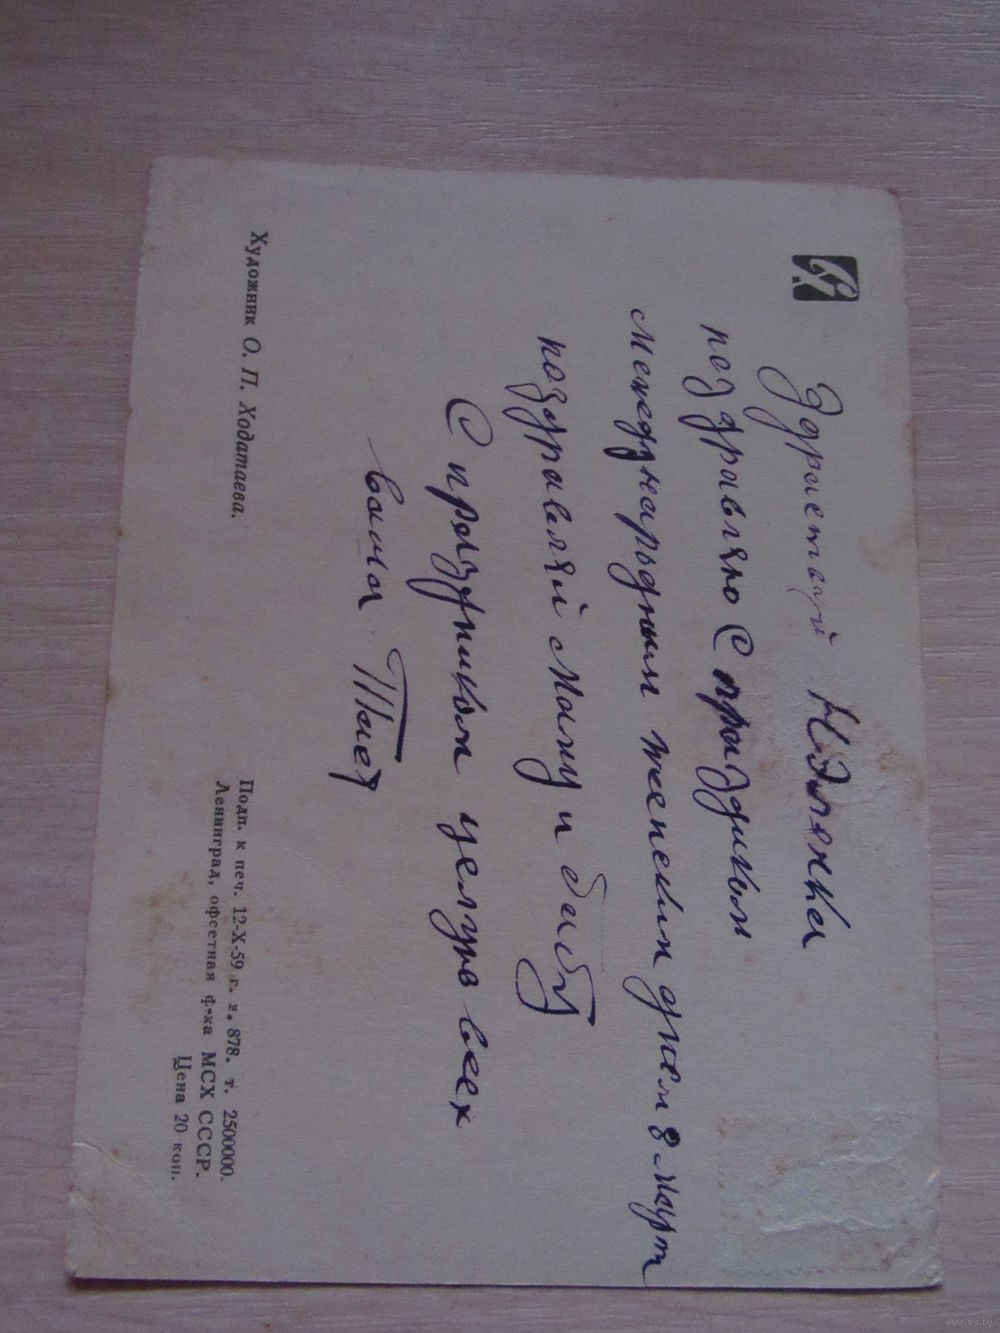 Здраствуй Наденька
поздравляю С праздиком
междунарьдным женским днем 8 март
поздравляй маму и бабу
С праздником целую всех
ваша
Художник О. П. Ходатаева.
Подп. к печ. 12-X-59 г. з. 878. т. 2500000.
Ленинград, офсетная ф-ка МСХ СССР.
Цена 20 коп.
www.ay.by